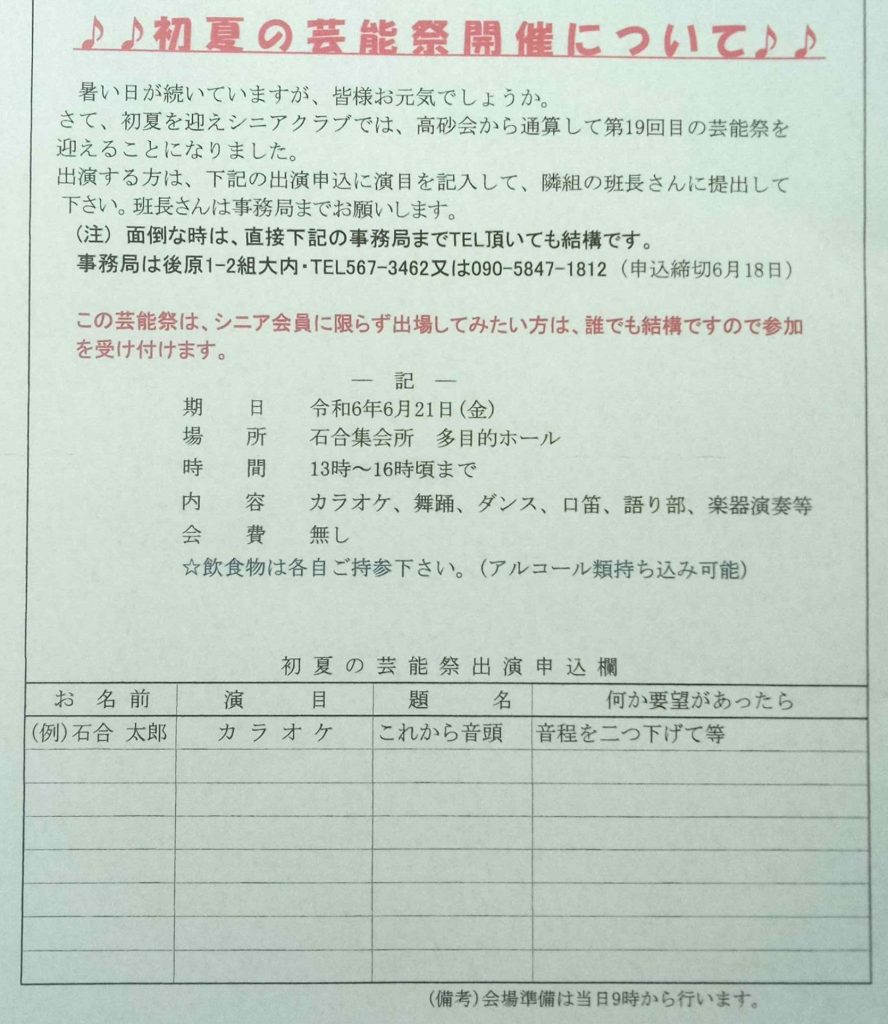 ♪♪初夏の芸能祭開催について♪♪
暑い日が続いていますが、皆様お元気でしょうか。
さて、初夏を迎えシニアクラブでは、高砂会から通算して第19回目の芸能祭を
迎えることになりました。
出演する方は、下記の出演申込に演目を記入して、隣組の班長さんに提出して
下さい。班長さんは事務局までお願いします。
(注) 面倒な時は、直接下記の事務局までTEL頂いても結構です。
事務局は後原1-2組大内・TEL567-3462又は090-5847-1812 (申込締切6月18日)
この芸能祭は、シニア会員に限らず出場してみたい方は、誰でも結構ですので参加
を受け付けます。
― 記 ―
期 日 令和6年6月21日(金)
場 所 石合集会所 多目的ホール
時 間 13時～16時頃まで
内 容 カラオケ、舞踊、ダンス、口笛、語り部、楽器演奏等
会 費 無し
☆飲食物は各自ご持参下さい。(アルコール類持ち込み可能)
初夏の芸能祭出演申込欄
お名前 演目 題名 何か要望があったら
(例)石合 太郎 カラオケ これから音頭 音程を二つ下げて等
(備考)会場準備は当日9時から行います。